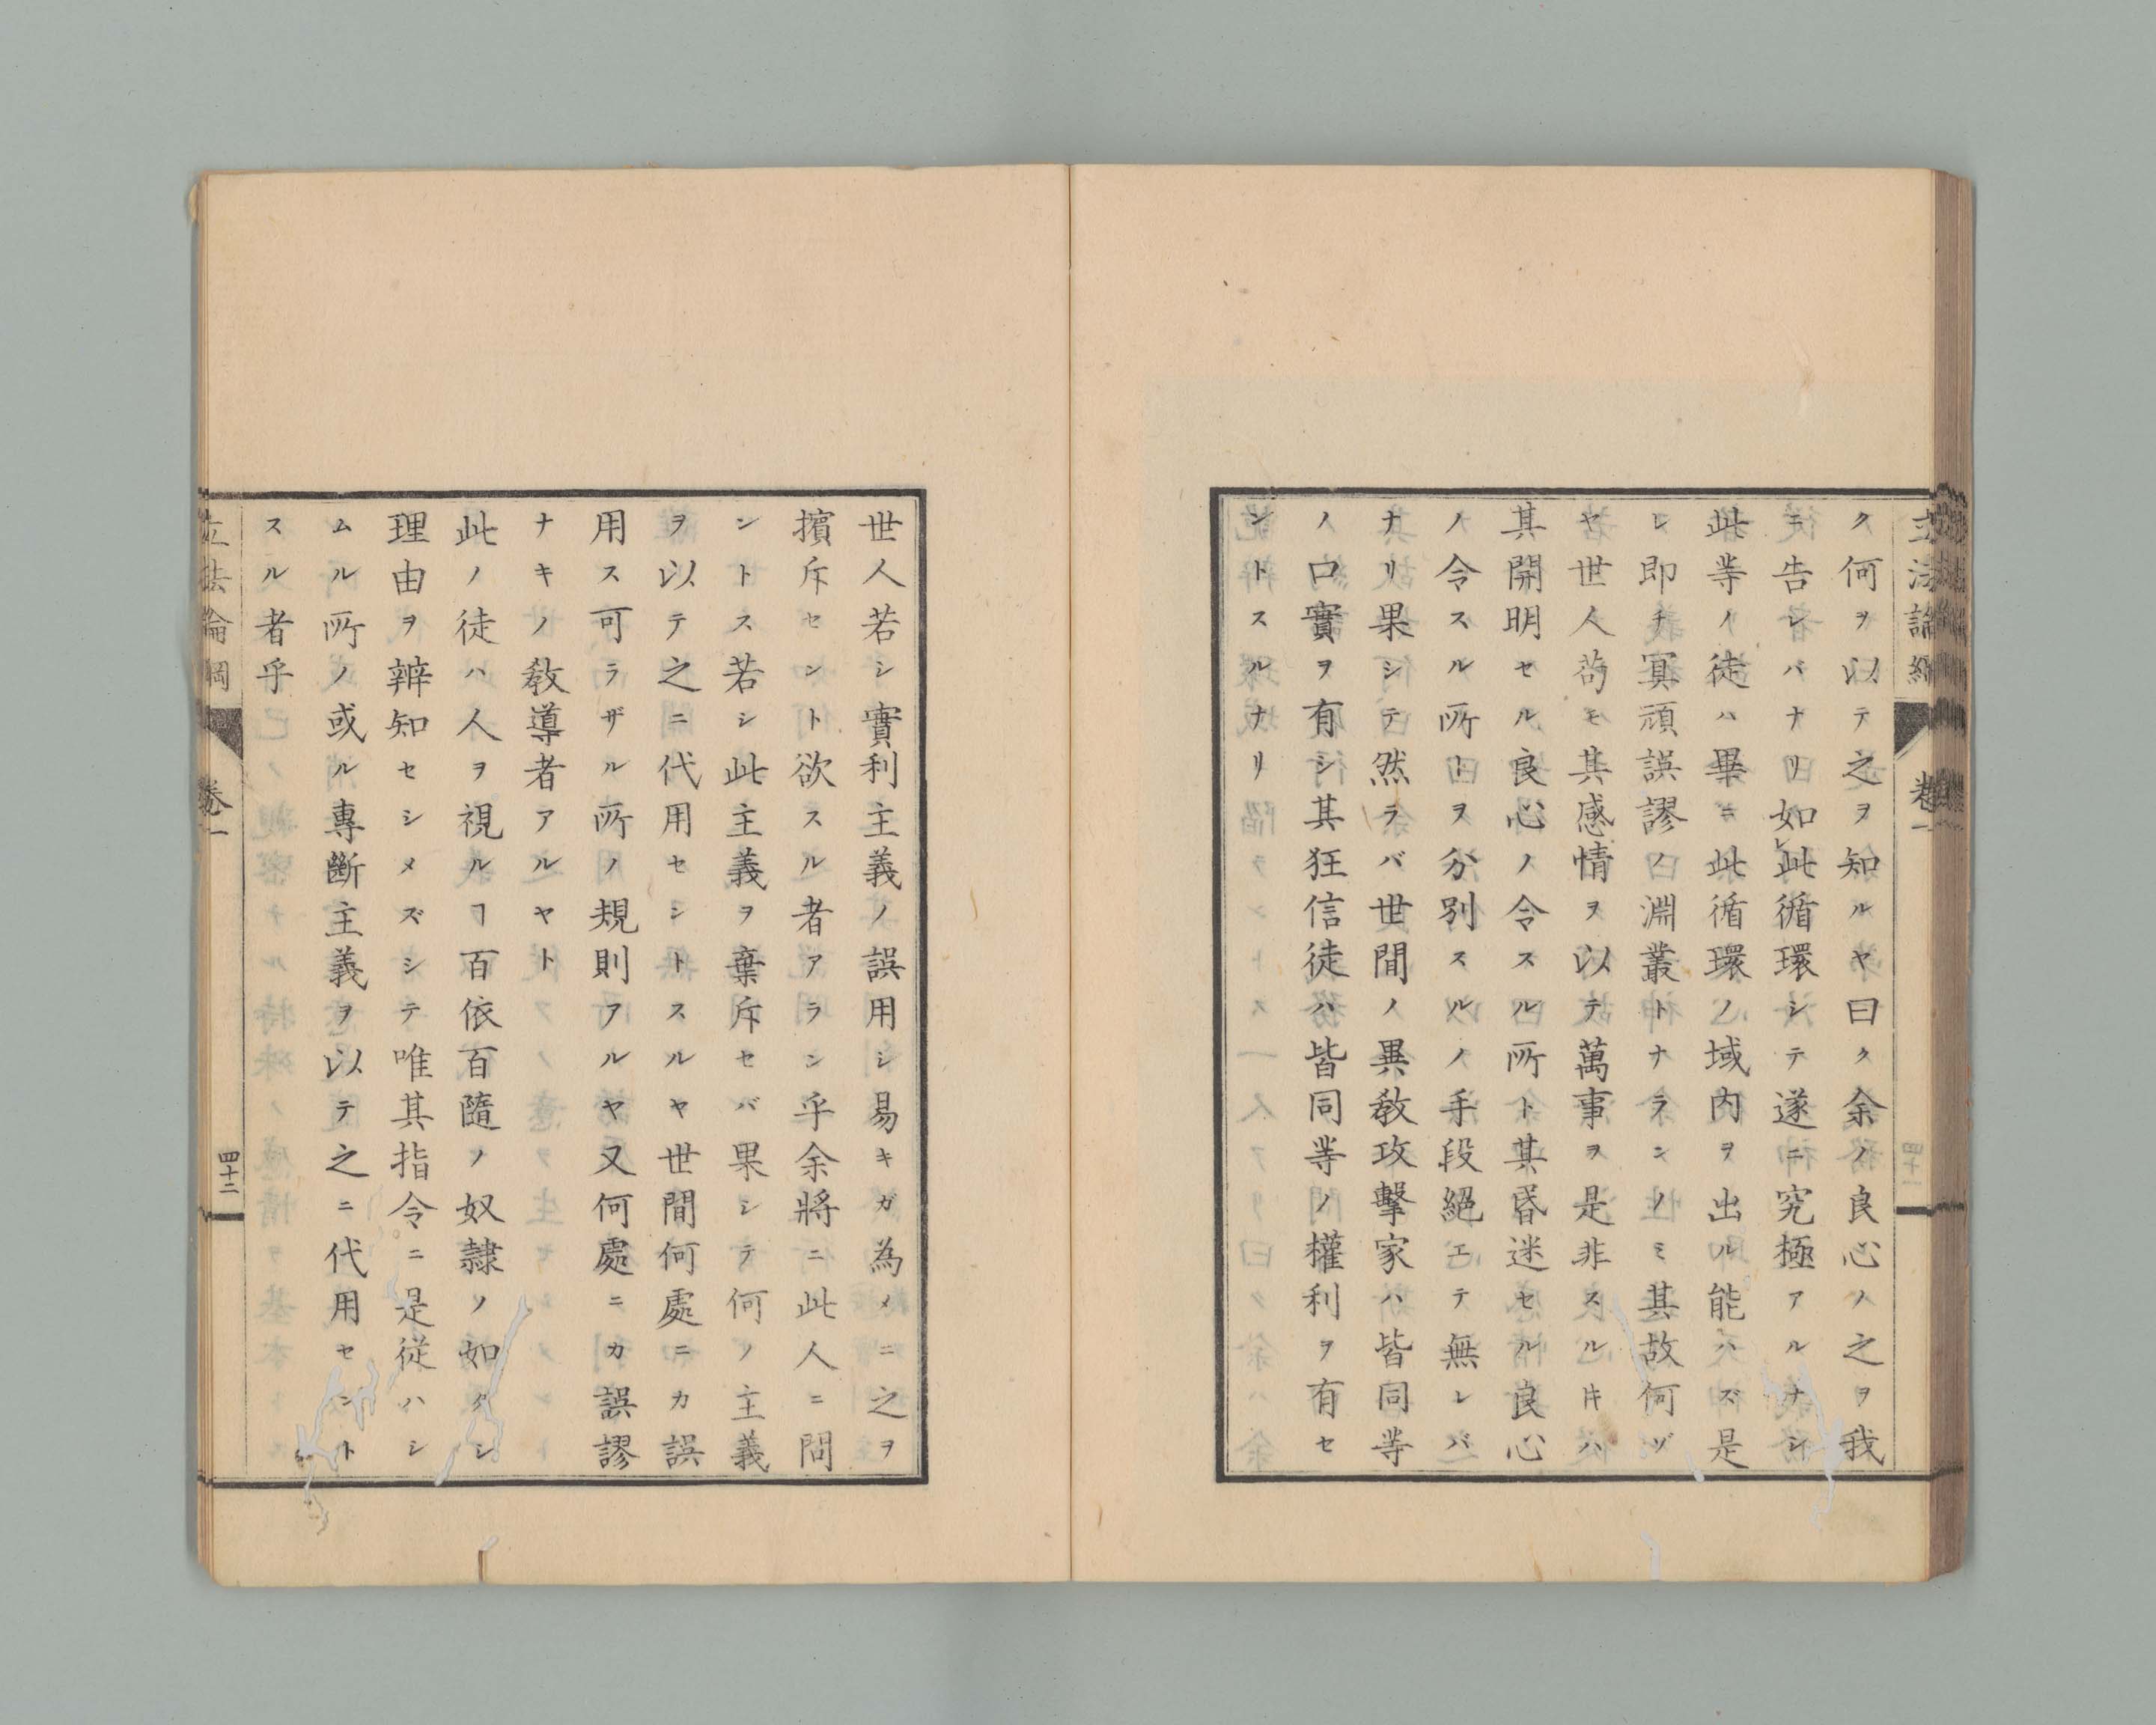 立法論綱
卷一
ク何ヲ以テ之ヲ知ルヤ曰ク余ノ良心ノ之ヲ我
ニ告レバナリ如此循環シテ遂ニ究極アルナシ
此等ノ徒ハ畢ニ此循環ノ域内ヲ出ル能ハズ是
レ即チ冥頑誤謬ノ淵叢トナランノミ其故何ゾ
ヤ世人苟モ其感情ヲ以テ萬事ヲ是非スルキハ
其開明セル良心ノ令スル所ト其昏迷セル良心
ノ令スル所トヲ分別スルノ手段絕エテ無レバ
ナリ果シテ然ラバ世間ノ異教攻擊家ハ皆同等
ノ口實ヲ有シ其狂信徒ハ皆同等ノ權利ヲ有セ
ントスルナリ
世人若シ實利主義ノ誤用シ易キガ為メニ之ヲ
擯斥セント欲スル者アラン乎余將ニ此人ニ問
ントス若シ此主義ヲ棄斥セバ果シテ何ノ主義
ヲ以テ之ニ代用セントスルヤ世間何處ニカ誤
用ス可ラザル所ノ規則アルヤ又何處ニカ誤謬
ナキノ教導者アルヤト
此ノ徒ハ人ヲ視ルヿ百依百隨ノ奴隸ノ如クシ
理由ヲ辨知セシメズシテ唯其指令ニ是従ハシ
ムル所ノ或ル專斷主義ヲ以テ之ニ代用セント
スル者乎
立法論綱
卷一
四十二